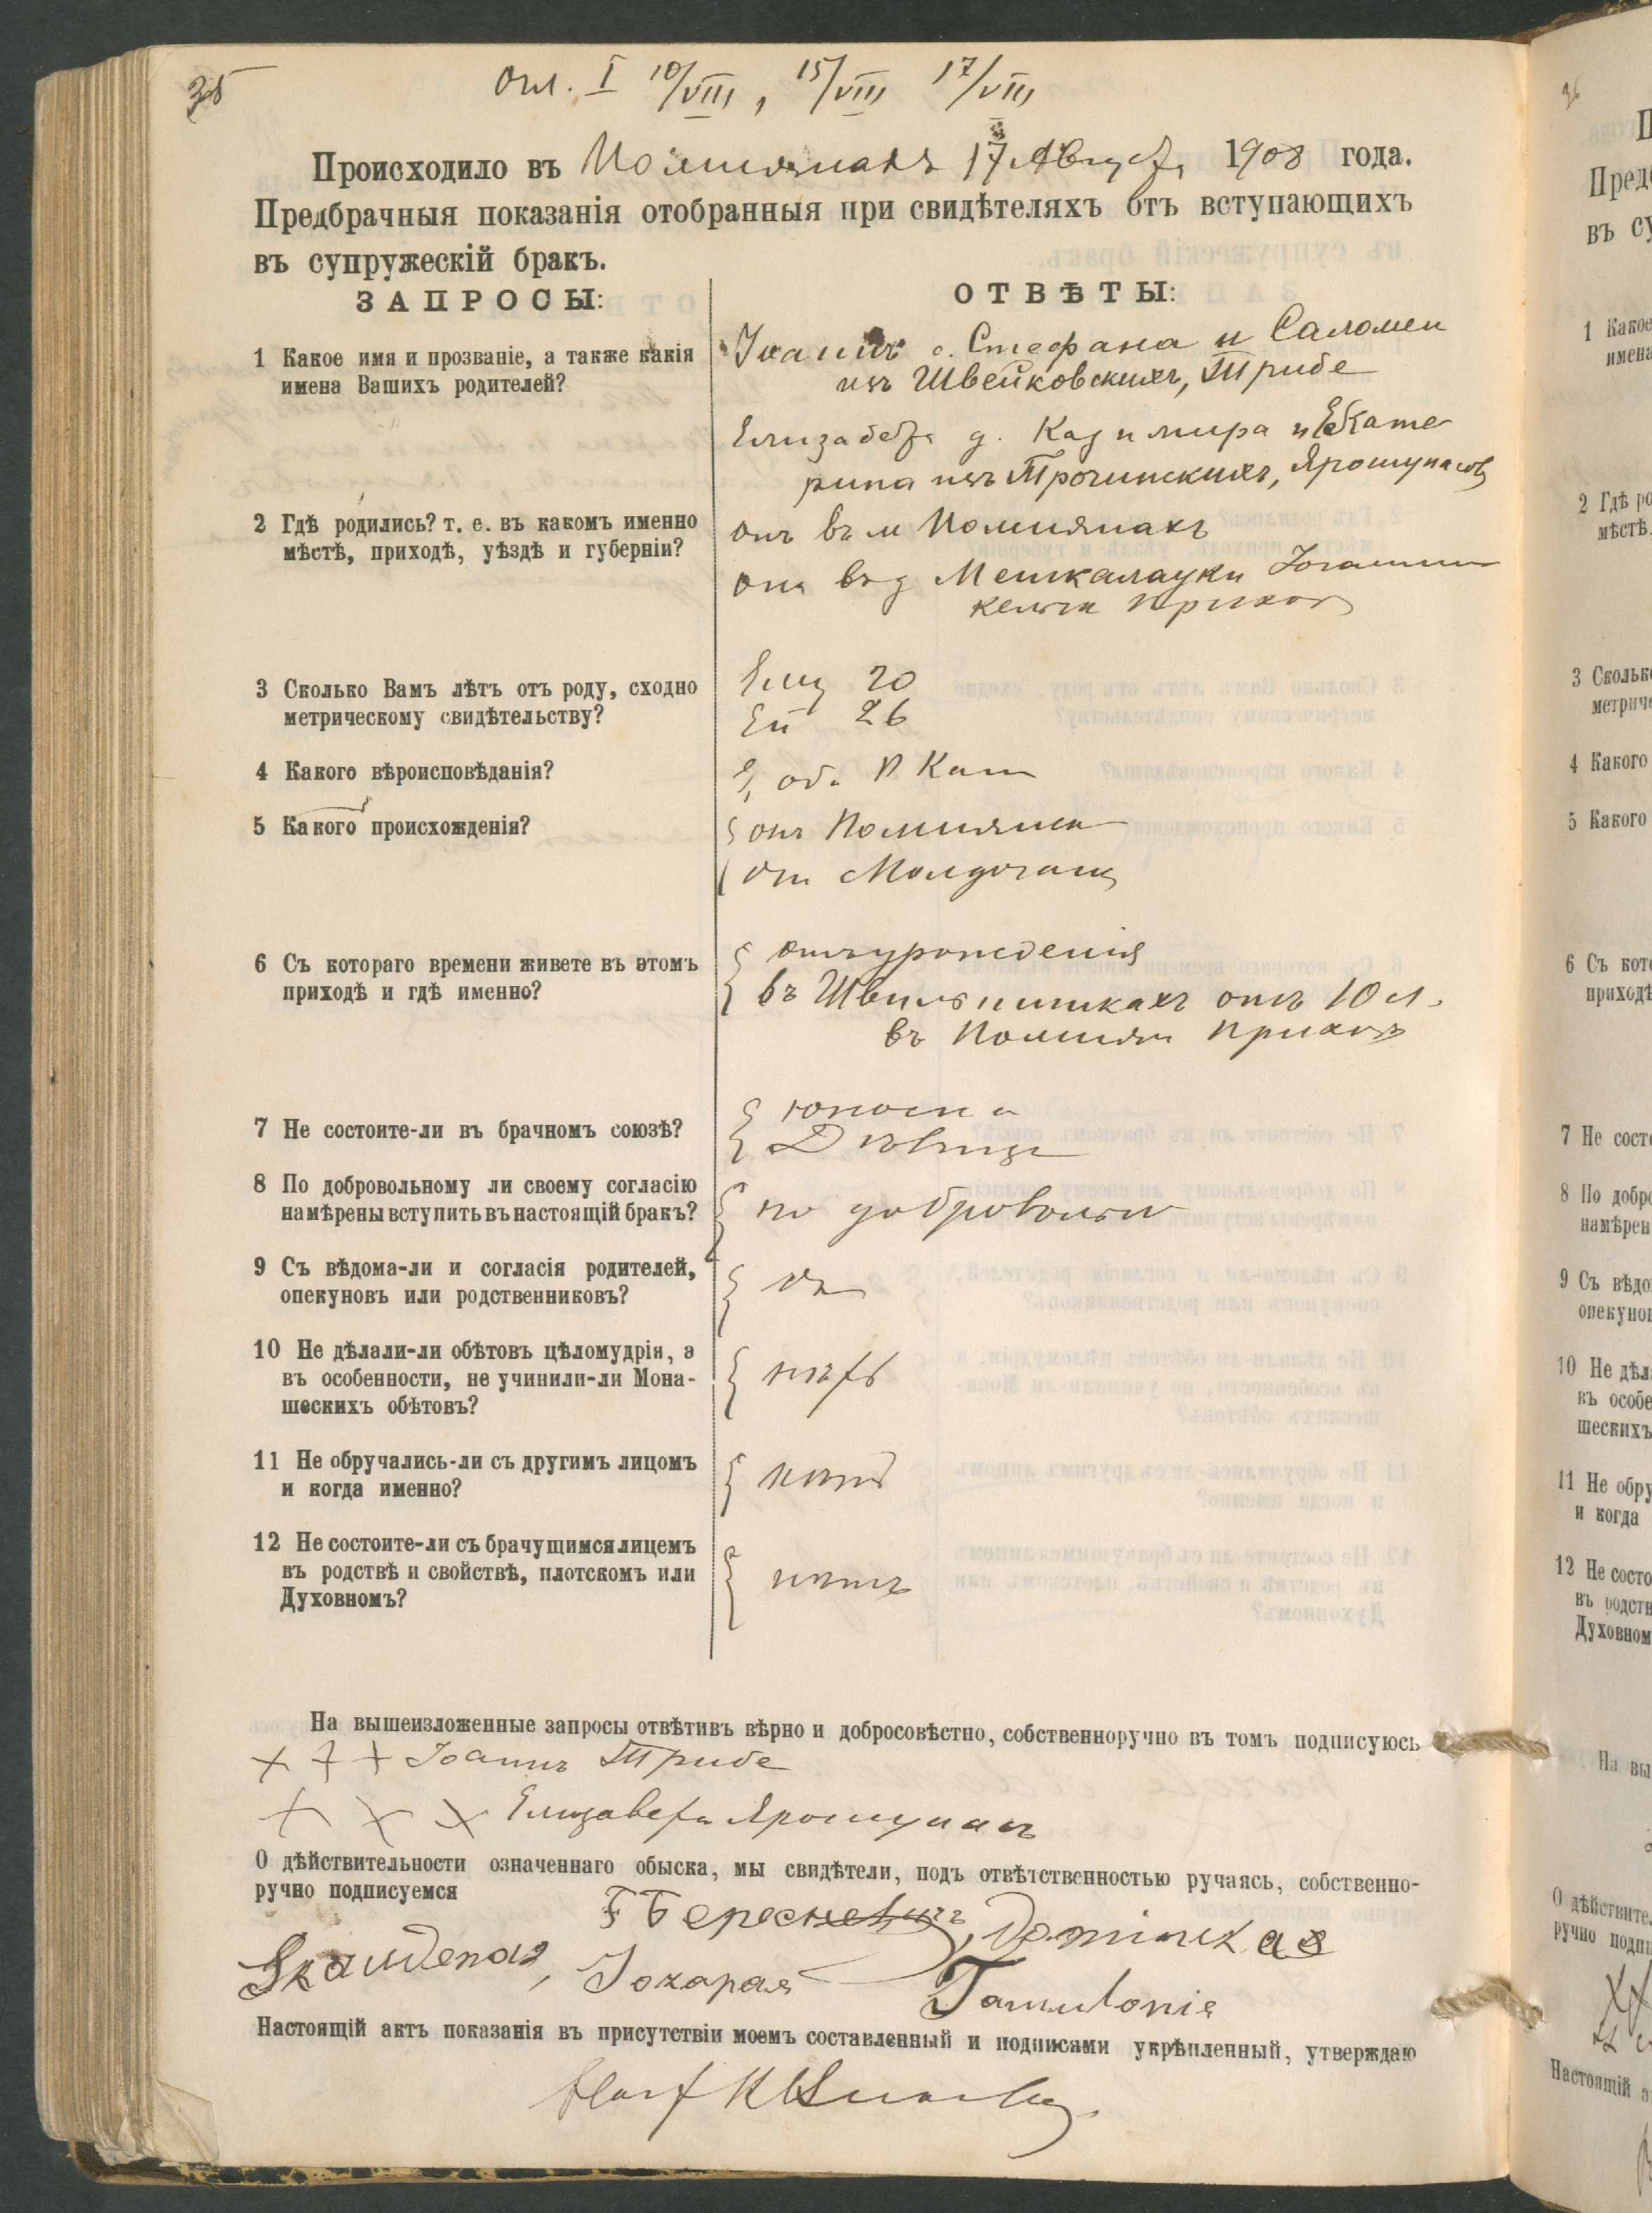 35
Огл. I 10/VIII, 15/VIII 17/VIII
Происходило въ Помпянахъ 17 Августа 1908 года.
Предбрачныя показанія отобранныя при свидѣтеляхъ отъ вступающихъ
въ супружескій бракъ.
ЗАПРОСЫ:
ОТВѢТЫ:
1 Какое имя и прозваніе, а также какія
имена Вашихъ родителей?
Іоаннъ с. Стефана и Саломеи
изъ Швейковскихъ, Трибе
Елизабета д. Казимира и Екате
рина изъ Трочинскихъ, Ярошунасъ
2 Гдѣ родились? т. е. въ какомъ именно
мѣстѣ, приходѣ, уѣздѣ и губерніи?
онъ въ м Помпянахъ
она въ д Мешкалауки Іоганиш
кельск приход
3 Сколько Вамъ лѣтъ отъ роду, сходно
метрическому свидѣтельству?
Ему 20
Ей 26
4 Какого вѣроисповѣданія?
оба Р Кат
5 Какого происхожденія?
онъ Помпянск
она
6 Съ котораго времени живете въ этомъ
приходѣ и гдѣ именно?
отъ урожденія
въ отъ 10 л.
въ Помпян приходѣ
7 Не состоите-ли въ брачномъ союзѣ?
юноша
Дѣвица
8 По добровольному ли своему согласію
намѣрены вступить въ настоящій бракъ?
по добровольн
9 Съ вѣдома-ли и согласія родителей,
опекуновъ или родственниковъ?
10 Не дѣлали-ли обѣтовъ цѣломудрія, а
въ особенности, не учинили-ли Мона-
шескихъ обѣтовъ?
нѣтъ
11 Не обручались-ли съ другимъ лицомъ
и когда именно?
нѣтъ
12 Не состоите-ли съ брачущимся лицемъ
въ родствѣ и свойствѣ, плотскомъ или
Духовномъ?
нѣтъ
На вышеизложенные запросы отвѣтивъ вѣрно и добросовѣстно, собственноручно въ томъ подписуюсь
+ + + Іоаннъ Трибе
+ + + Елизавета Ярошунасъ
О дѣйствительности означеннаго обыска, мы свидѣтели, подъ отвѣтственностью ручаясь, собственно-
ручно подписуемся
Бересневичъ, Dominikas
Skaudenas,
Tamulonis
Настоящій актъ показанія въ присутствіи моемъ составленный и подписами укрѣпленный, утверждаю